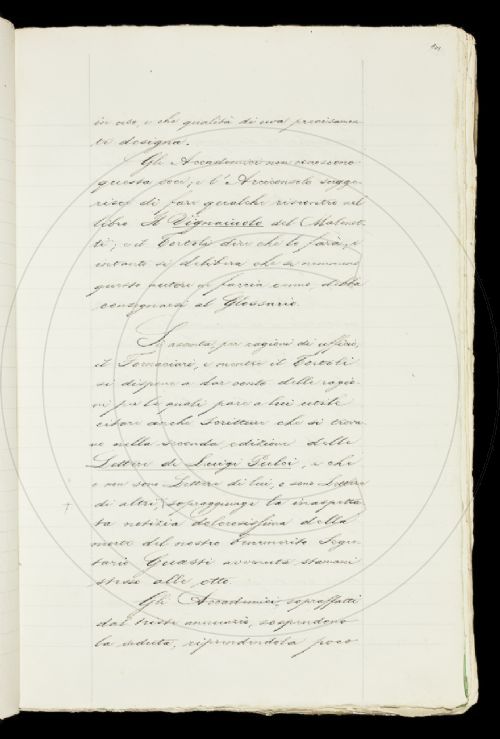 in uso, e che qualità di uva precisamen-
te designa.
Gli Accademici non conoscono
questa voce; e l'Arciconsolo sugge-
risce di fare qualche riscontro nel
libro Il Vignaiuolo del Malenot-
ti; e il Tortoli dice che lo farà, e
intanto si delibera che se nessuno
questo autore ne faccia cenno, debba
consegnarsi al Glossario.
S'è assentato, per ragioni di uffizio,
il Fornaciari, e mentre il Tortoli
si dispone a dar conto delle ragio-
ni per le quali pare a lui utile
citare anche scritture che si trova-
no nella seconda edizione delle
Lettere di Luigi Pulci, e che
o non sono Lettere di lui, o sono Lettere
di altri, sopraggiunge la inaspetta-
ta notizia dolorosissima della
morte del nostro benemerito Segre-
tario Guasti avvenuta stamani
stesso alle otto.
Gli Accademici, sopraffatti
dal triste annunzio, sospendono
la seduta, riprendendola poco